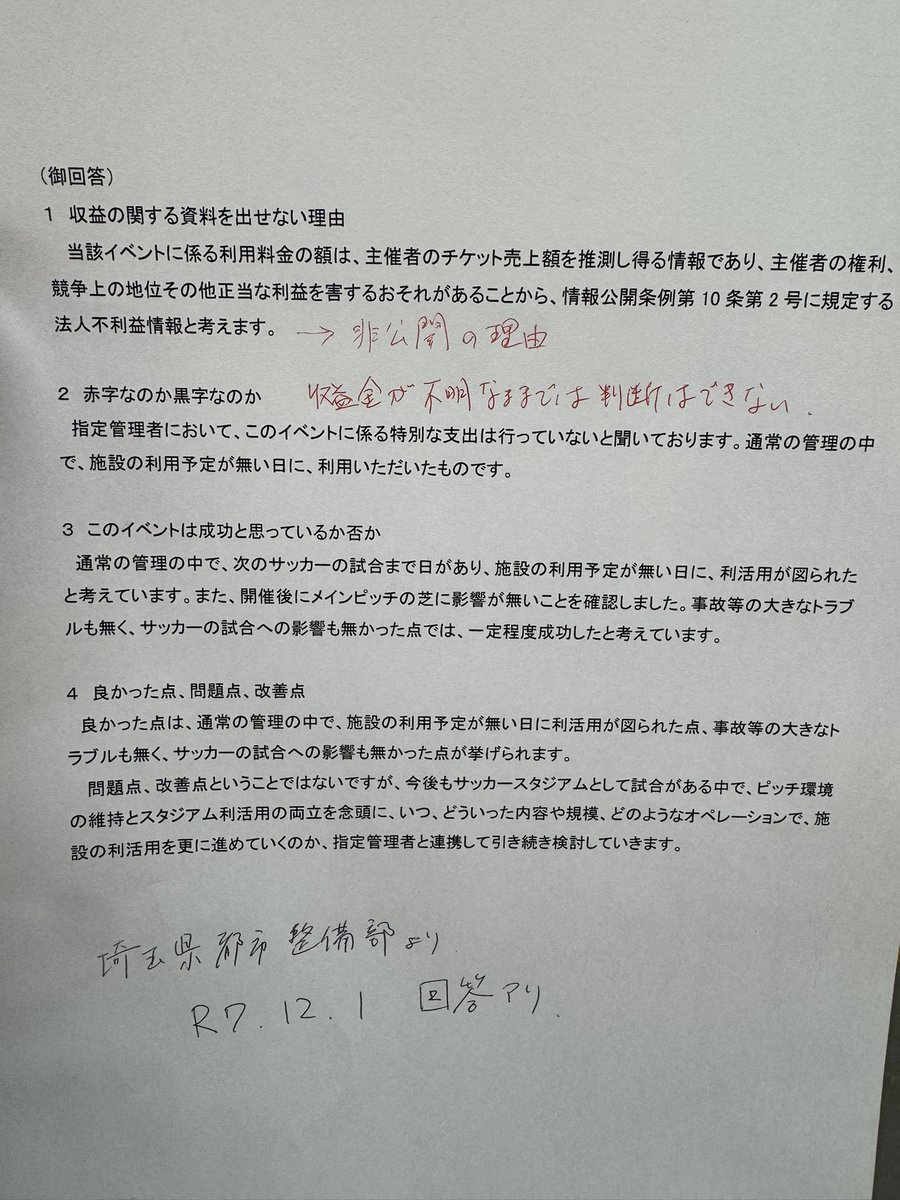 （御回答）
1　収益の関する資料を出せない理由
当該イベントに係る利用料金の額は、主催者のチケット売上額を推測し得る情報であり、主催者の権利、
競争上の地位その他正当な利益を害するおそれがあることから、情報公開条例第10条第2号に規定する
法人不利益情報と考えます。 → 非公開の理由
2　赤字なのか黒字なのか 収益金が不明なままでは判断はできない.
指定管理者において、このイベントに係る特別な支出は行っていないと聞いております。通常の管理の中
で、施設の利用予定が無い日に、利用いただいたものです。
3　このイベントは成功と思っているか否か
通常の管理の中で、次のサッカーの試合まで日があり、施設の利用予定が無い日に、利活用が図られた
と考えています。また、開催後にメインピッチの芝に影響が無いことを確認しました。事故等の大きなトラブ
ルも無く、サッカーの試合への影響も無かった点では、一定程度成功したと考えています。
4　良かった点、問題点、改善点
良かった点は、通常の管理の中で、施設の利用予定が無い日に利活用が図られた点、事故等の大きなト
ラブルも無く、サッカーの試合への影響も無かった点が挙げられます。
問題点、改善点ということではないですが、今後もサッカースタジアムとして試合がある中で、ピッチ環境
の維持とスタジアム利活用の両立を念頭に、いつ、どういった内容や規模、どのようなオペレーションで、施
設の利活用を更に進めていくのか、指定管理者と連携して引き続き検討していきます。
埼玉県都市整備部より
R7.12.1 回答アリ.